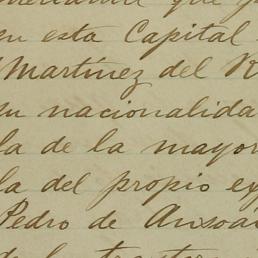 que
en esta Capital
Martínez del R
su nacionalida
la de la mayor
la del propio ex
Pedro de Ansoá